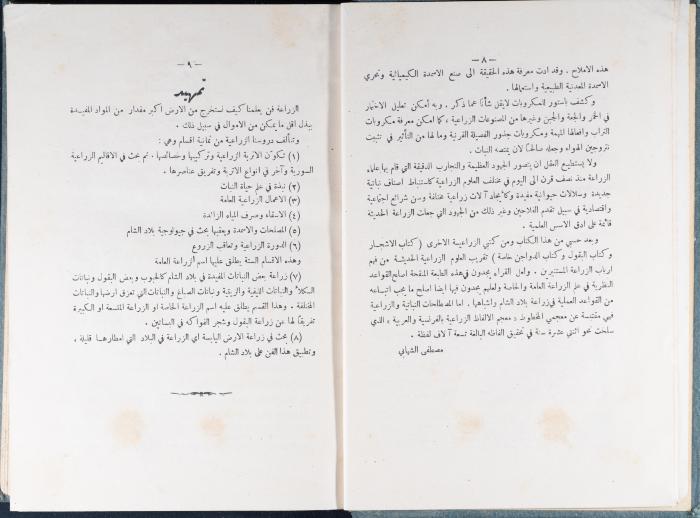 — ٨ —
هذه الاملاح . وقد ادت معرفة هذه الحقيقة الى صنع الاسمدة الكيميائية وتحري
الاسمدة المعدنية الطبيعية واستعمالها .
وكشف باستور للمكروبات لايقل شأنا عما ذكر . وبه أمكن تعليل الاختمار
في الخمر والجعة والجبن وغيرها من المصنوعات الزراعية ، كما امكن معرفة مكروبات
التراب وافعالها المهمة ومكروبات جذور الفصيلة القرنية وما لها من التأثير في تثبيت
نتروجين الهواء وجعله صالحاً لان يمتصه النبات .
ولا يستطيع العقل ان يتصور الجهود العظيمة والتجارب الدقيقة التي قام بها علماء
الزراعة منذ نصف قرن الى اليوم في مختلف العلوم الزراعية كاستنباط اصناف نباتية
جديدة وسلالات حيوانية مفيدة وكايجاد آلات زراعية مختلفة وسن شرائع اجتماعية
واقتصادية في سبيل تقدم الفلاحين وغير ذلك من الجهود التي جعلت الزراعة الحديثة
قائمة على ادق الاسس العلمية .
وبعد حسبي من هذا الكتاب ومن كتبي الزراعية الاخرى ( كتاب الاشجار
وكتاب البقول وكتاب الدواجن خاصة ) تقريب العلوم الزراعية الحديثة من فهم
ارباب الزراعة المستنيرين . ولعل القراء يجدون في هذه الطبعة المنقحة اصلح القواعد
النظرية في علم الزراعة العامة والخاصة ولعلهم يجدون فيها ايضا اصلح ما يجب اتباعه
من القواعد العملية في زراعة بلاد الشام واشباهها . اما المصطلحات النباتية والزراعية
فهي مقتبسة عن معجمي المخطوط « معجم الالفاظ الزراعية بالفرنسية والعربية » الذي
سلخت نحو اثنتي عشرة سنة في تحقيق الفاظه البالغة تسعة آلاف لفظة .
مصطفى الشهابي
— ٩ —
تمهيد
الزراعة فن يعلمنا كيف نستخرج من الارض اكبر مقدار من المواد المفيدة
ببذل اقل ما يمكن من الاموال في سبيل ذلك .
وتتألف دروسنا الزراعية من ثمانية اقسام وهي :
(١) تكوّن الاتربة الزراعية وتركيبها وخصائصها . ثم بحث في الاقاليم الزراعية
السورية وآخر في انواع الاتربة وتفريق عناصرها .
(٢) نبذة في علم حياة النبات
(٣) الاعمال الزراعية العامة
(٤) الاسقاء وصرف المياه الزائدة
(٥) المصلحات والاسمدة ويعقبها بحث في جيولوجية بلاد الشام
(٦) الدورة الزراعية وتعاقب الزروع
وهذه الاقسام الستة يطلق عليها اسم الزراعة العامة
(٧) زراعة بعض النباتات المفيدة في بلاد الشام كالحبوب وبعض البقول ونباتات
الكلأ والنباتات الليفية والزيتية ونباتات الصباغ والنباتات التي تعزق ارضها والنباتات
المختلفة . وهذا القسم يطلق عليه اسم الزراعة الخاصة او الزراعة المتسعة او الكبيرة
تفريقاً لها عن زراعة البقول وشجر الفواكه في البساتين .
(٨) بحث في زراعة الارض اليابسة اي الزراعة في البلاد التي امطارها قليلة ،
وتطبيق هذا الفن على بلاد الشام .